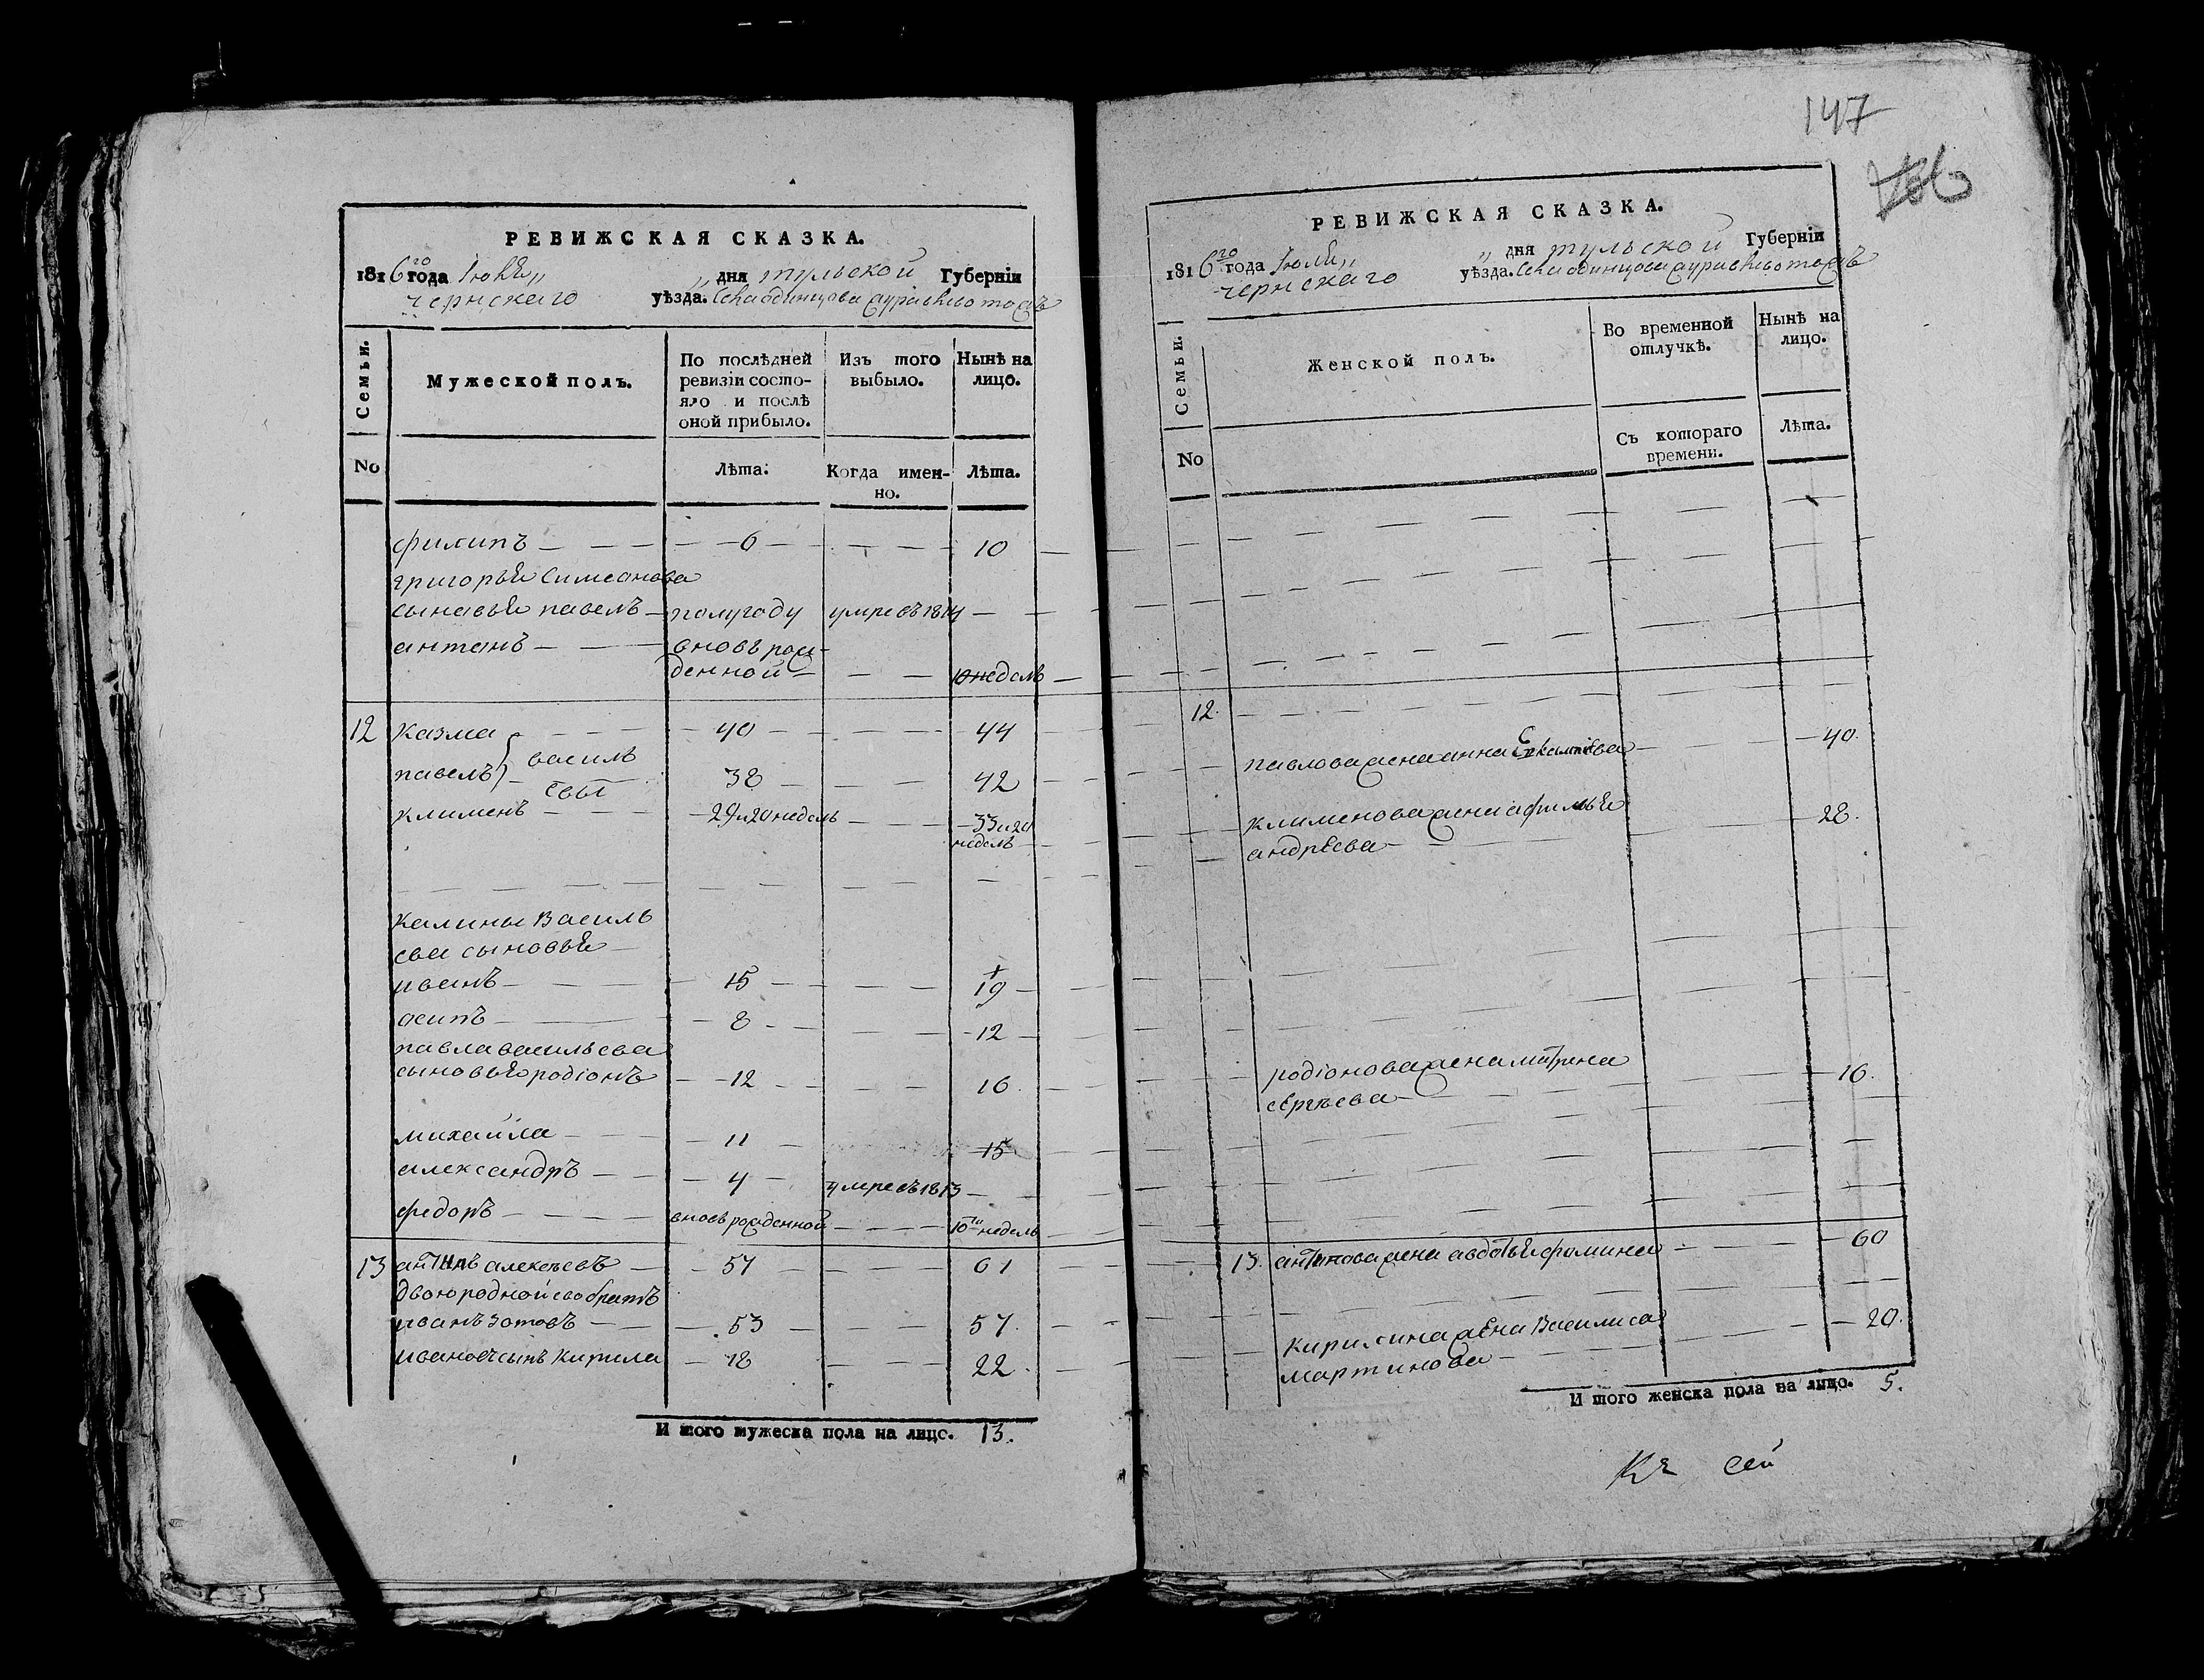 РЕВИЖСКАЯ СКАЗКА.
1816го года Iюля „ „ дня тульской Губернiи
чернскаго уѣзда. Села одинцова журавлево тожъ
Семьи. Мужеской полъ. По послѣдней ревизiи состояло и послѣ оной прибыло. Изъ того выбыло. Нынѣ на лицо.
No Лѣта. Когда именно. Лѣта.
филипъ 6 10
григорья Симеонова
сыновья павелъ полугоду умре въ 1814
антонъ вновь рож-
денной 10 недель
12 казма 40 44
павелъ } василь 38 42
евы
клименъ 29 и 20 недель 33 и 20
недель
калины Василь
ева сыновья
иванъ 15 19
осипъ 8 12
павла васильева
сыновья родiонъ 12 16
михайла 11 15
александръ 4 умре въ 1813
федоръ вновь рожденной 10ти недель
13 антипъ алексеевъ 57 61
двоюродной ево братъ
иванъ зотовъ 53 57
ивановъ сынъ кирила 18 22
И того мужеска пола на лицо. 13.
147
РЕВИЖСКАЯ СКАЗКА.
1816го года Iюля „ „ дня тульской Губернiи
чернскаго уѣзда. Села одинцова журавлево тожъ
Семьи. Женской полъ. Во временной отлучкѣ. Нынѣ на лицо.
No Съ котораго времени. Лѣта.
12.
павлова жена анна 40.
клименова жена афимья 28.
андрѣева
родiонова жена матрена 16.
сергѣева
13. антипова жена авдотья фомина 60
кирилина жена Василиса 20.
мартинова
И того женска пола на лицо. 5.
Къ сей